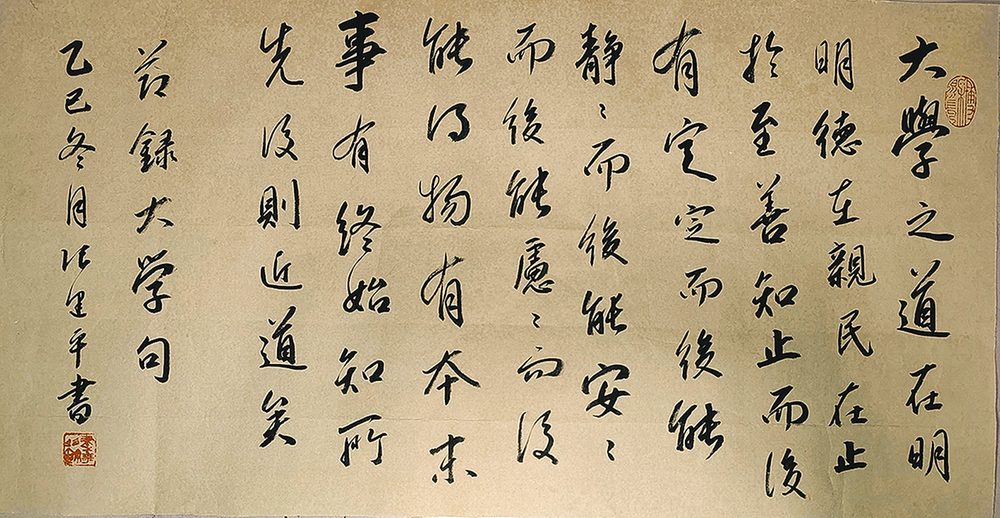 大學之道在明
明德在親民在止
於至善知止而後
有定定而後能
静〻而後能安〻
而後能慮〻而后
能得物有本末
事有终始知所
先後則近道矣
节録大学句
乙巳冬月张建平書